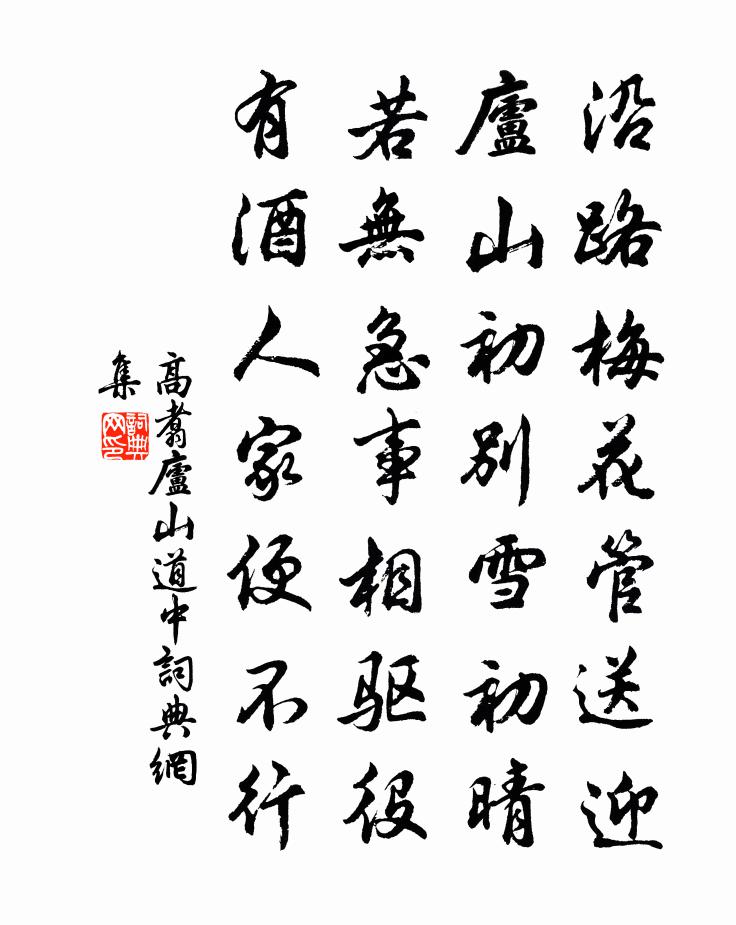 沿路梅花管送迎
廬山初別雪初晴
若無急事相驱役
有酒人家便不行
高翥廬山道中詞典網
集
詞典
网印